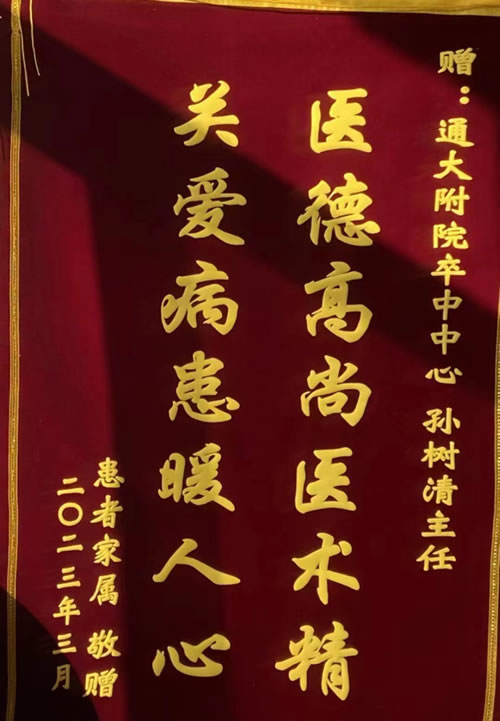 赠：通大附院卒中中心 孙树清主任
医德高尚医术精
关爱病患暖人心
患者家属 敬赠
二〇二三年三月